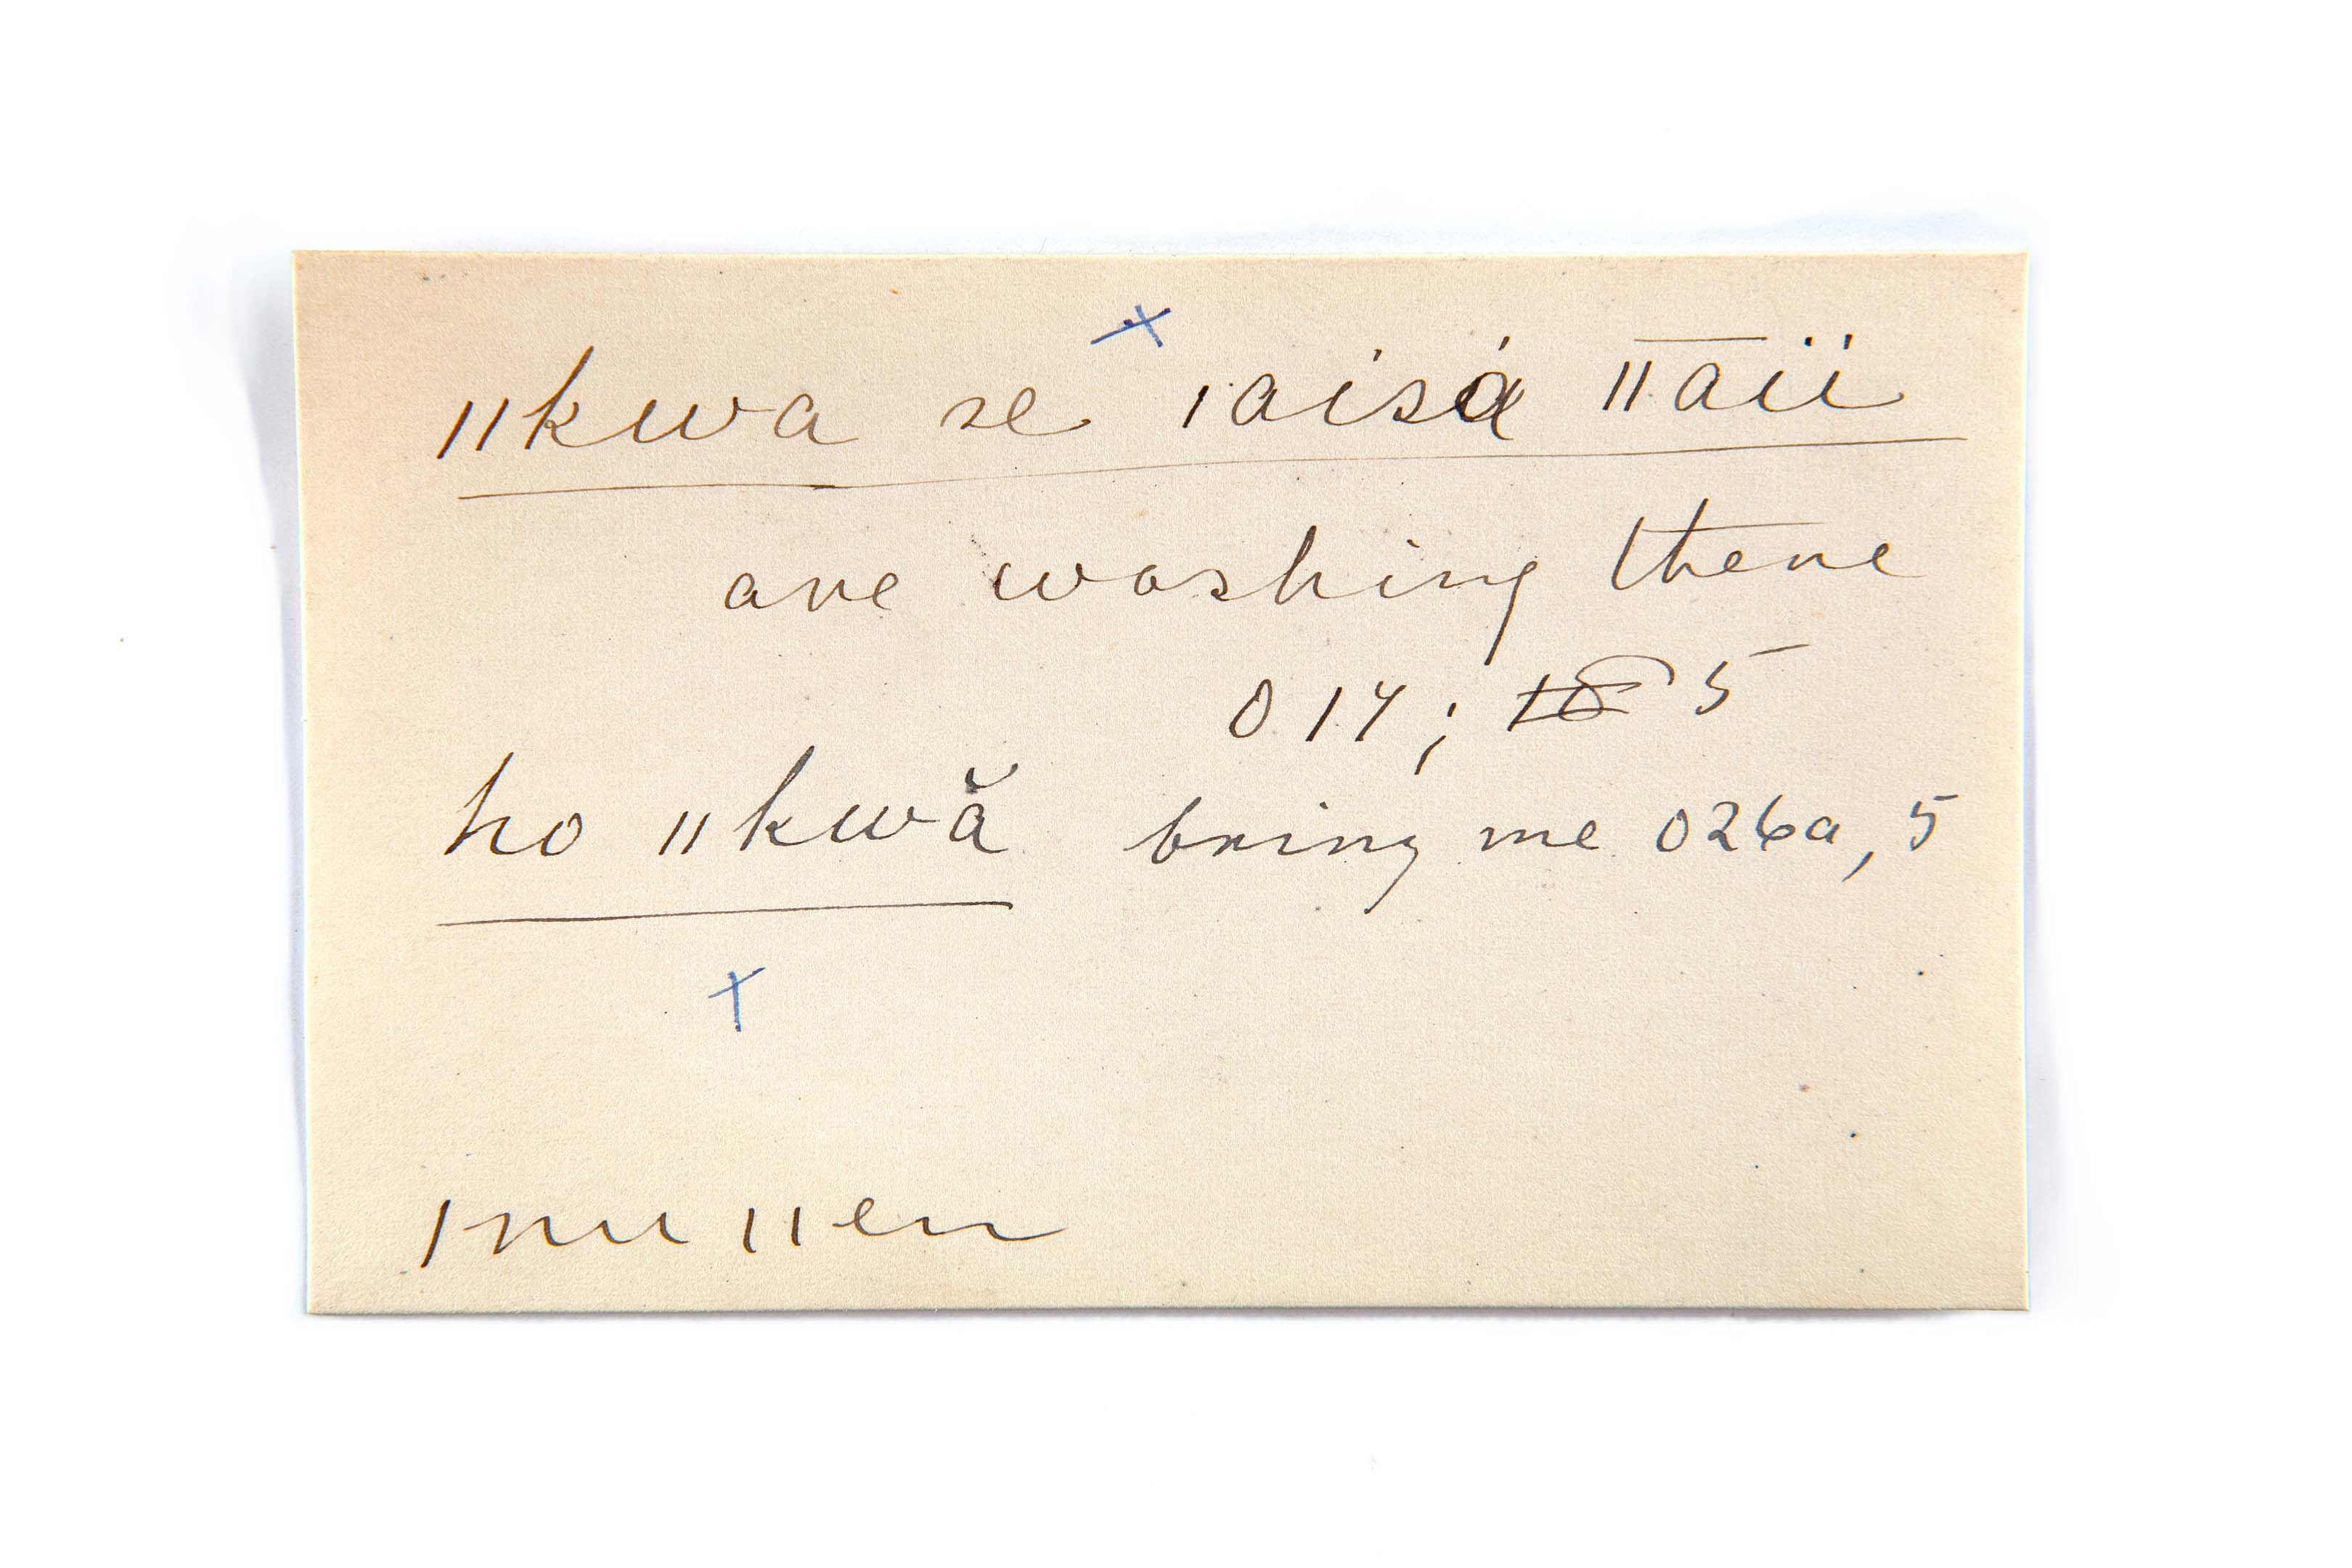 x
ǁkwa se ǀaisá ǁāïï
are washing there
014; 18 5
ho ǁkwă bring me 026a, 5
x
ǀnu ǁen